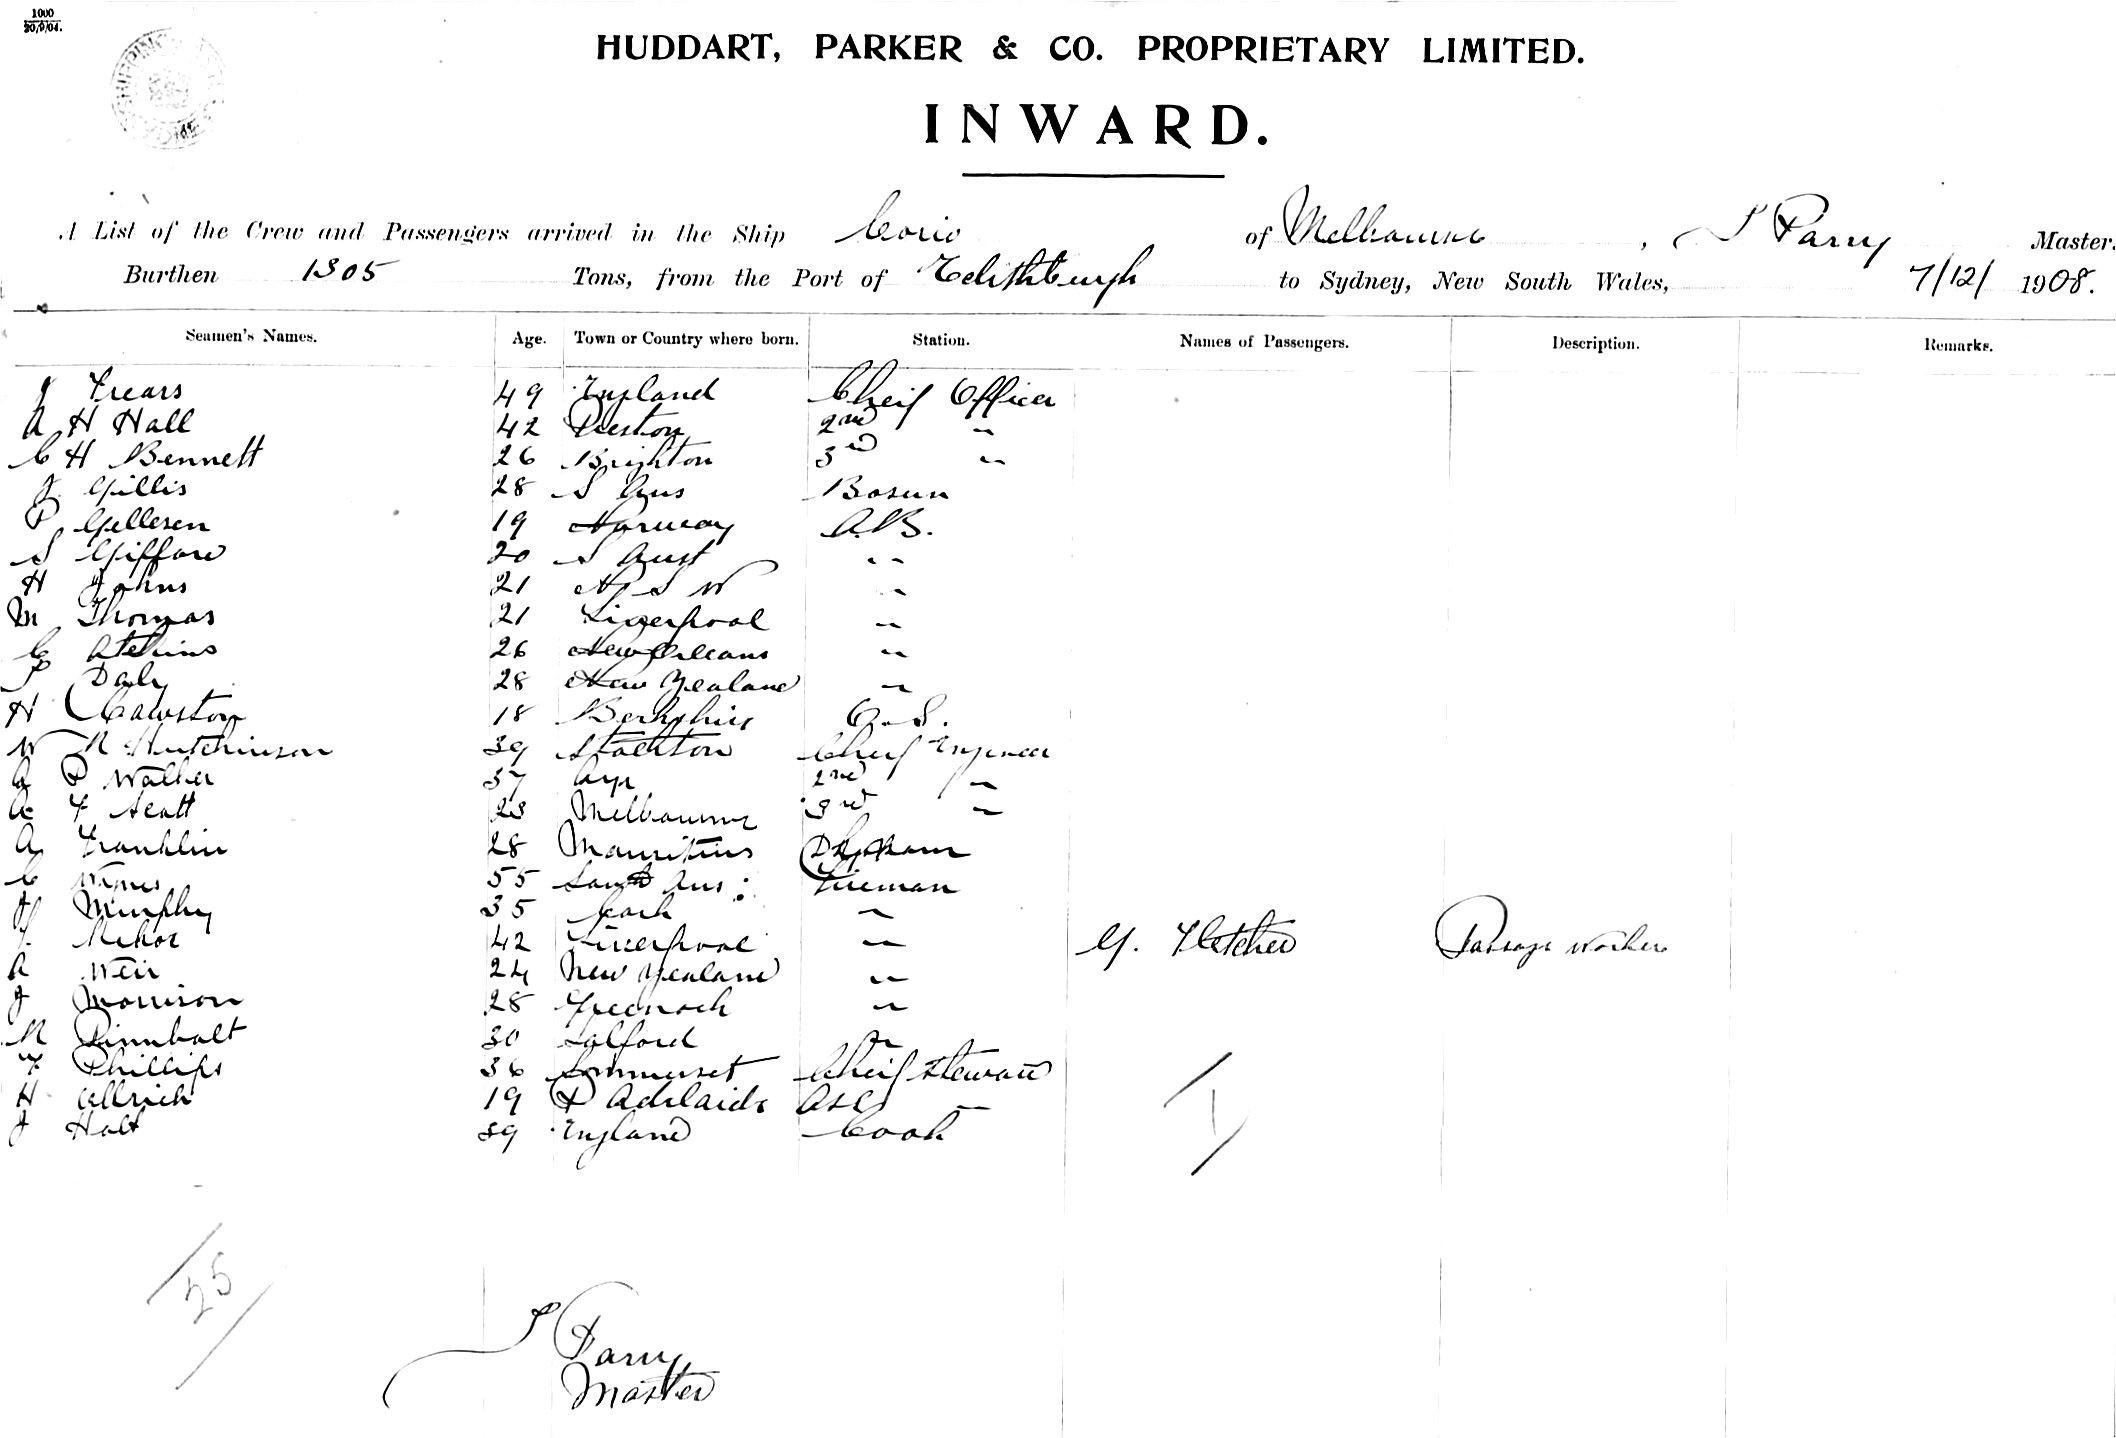 1000
20/9/04.
HUDDART, PARKER & CO. PROPRIETARY LIMITED.
INWARD.
A List of the Crew and Passengers arrived in the Ship Corio of Melbourne, S Parry Master.
Burthen 1305 Tons, from the Port of Edithburgh to Sydney, New South Wales, 7/12/ 1908.
Seamen's Names. Age. Town or Country where born. Station. Names of Passengers. Description. Remarks.
J Frears 49 England Cheif Officer
A H Hall 42 Preston 2nd "
C H Bennett 26 Brighton 3rd "
J Gillis 28 S Aus Bosun
P Gellesen 19 Norway A.B.
S Giffard 20 S Aust "
H Johns 21 N S W "
M Thomas 21 Liverpool "
C Atkins 26 New Orleans "
P Daly 28 New Zealand "
H Cawston 18 Berkshire O.S.
W R Hutchinson 39 Stockton Cheif Engineer
G P Walker 37 Ayr 2nd "
A F Scott 23 Melbourne 3rd "
A Franklin 28 Mauritius
C 55 South Aus: Fireman
J Murphy 35 Cork "
J. 42 Liverpool " G. Fletcher Passage Worker
A Weir 24 New Zealand "
J Morrison 28 Greenock "
R Rimbolt 30 Salford "
F Phillips 36 Sommerset Cheif Steward
H Ullrich 19 P Adelaide Ass "
J Holt 39 England Cook
1
25
S Parry
Master